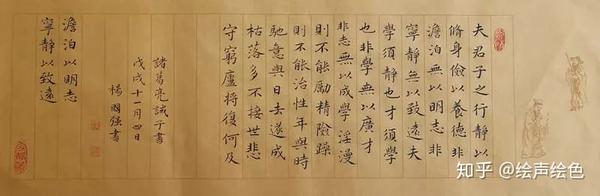 夫君子之行靜以
脩身儉以養德非
澹泊無以明志非
寧靜無以致遠夫
學須靜也才須學
也非學無以廣才
非志無以成學淫漫
則不能勵精險躁
則不能治性年與時
馳意與日去遂成
枯落多不接世悲
守窮廬將復何及
諸葛亮誡子書
戊戌十一月四日
楊國強書
澹泊以明志
寧靜以致遠
知乎 @绘声绘色